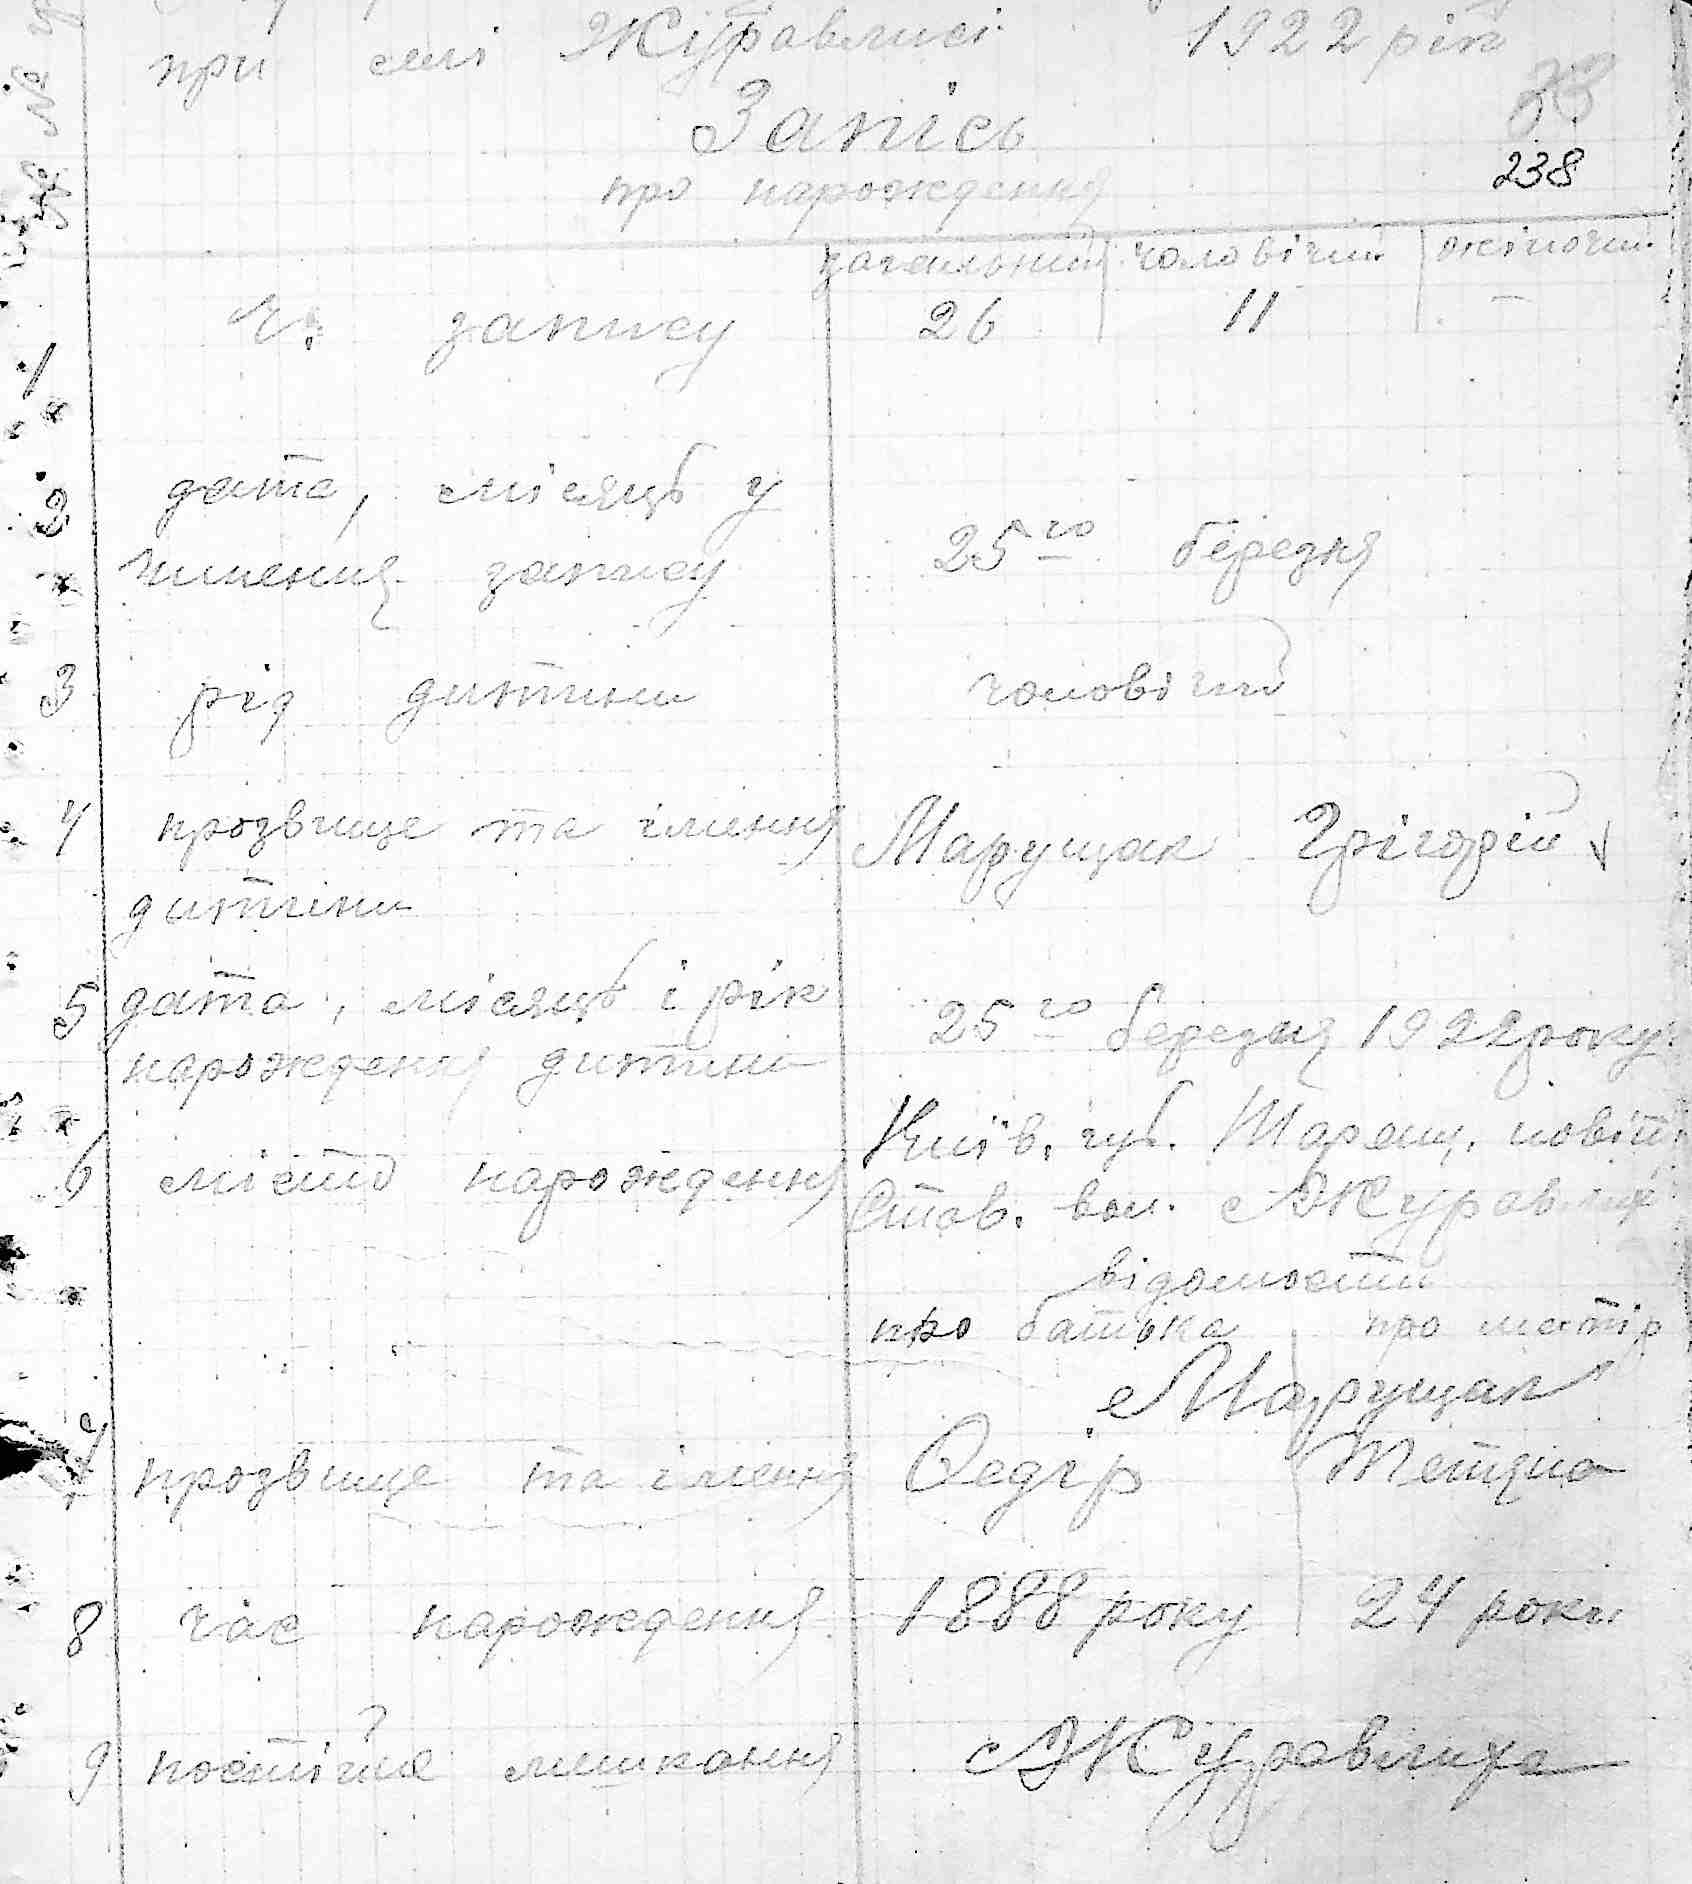 при селі Журавлисі 1922 рік
Запісь
238
про народження
загальний чоловічий жіночий
1 Ч. запису 26 11 –
дата, місяць у
2 чинення запису 25го березня
3 рід дитини чоловічий
4 прозвище та імення Марущак Грігорій
дитини
5 дата, місяць і рік 25го березня 1922 року
народження дитини
Київ. губ. Таращ. повіт
6 місто народження Став. вол. с Журавлиха
відомости
про батька про матір
Марущак
7 прозвище та імення Федір Тетяна
8 час народження 1888 року 24 роки
9 постійне мишкання с Журавлиха